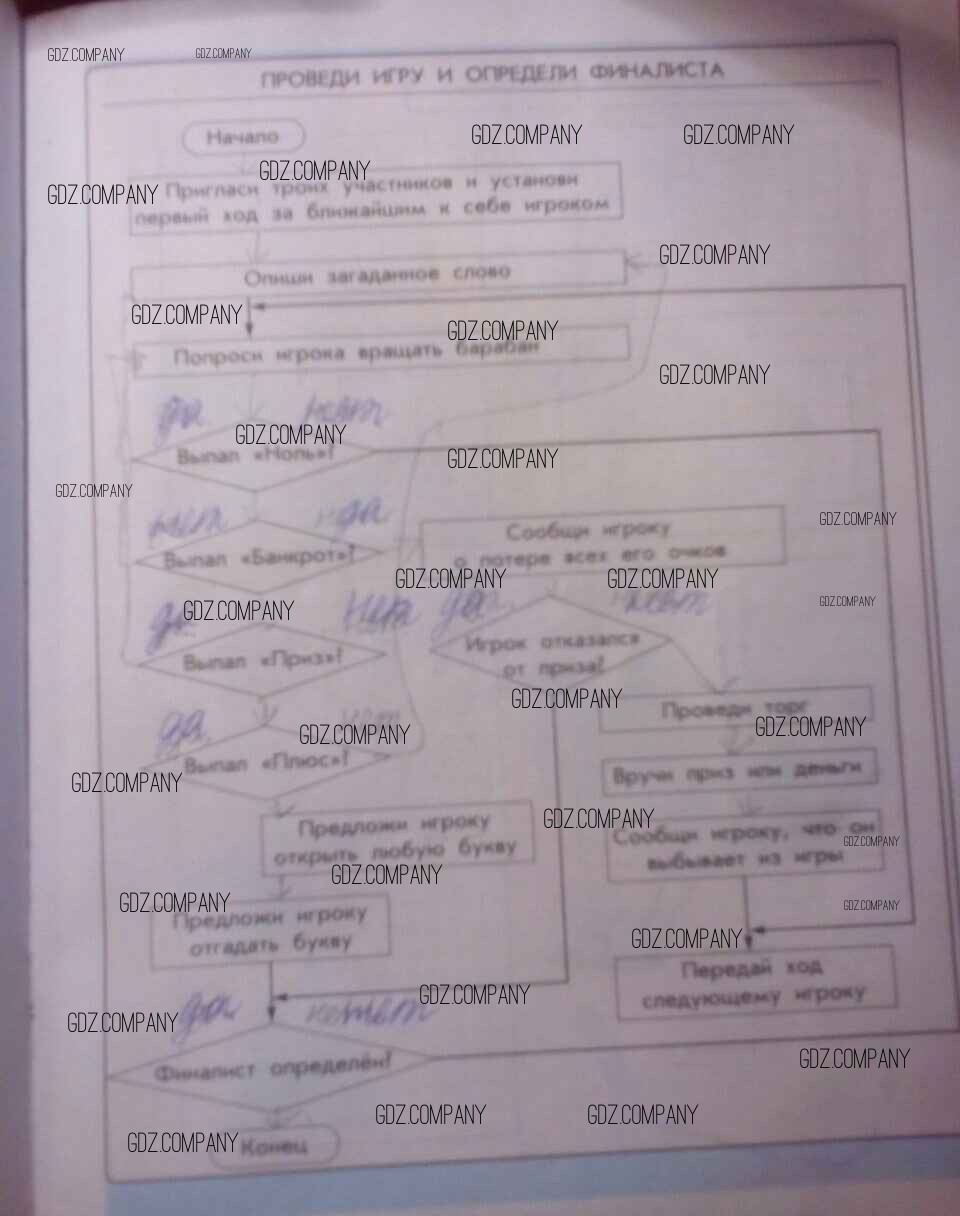 GDZ.COMPANY GDZ.COMPANY
ПРОВЕДИ ИГРУ И ОПРЕДЕЛИ ФИНАЛИСТА
Начало GDZ.COMPANY GDZ.COMPANY
GDZ.COMPANY
GDZ.COMPANY Пригласи троих участников и установи
первый ход за ближайшим к себе игроком
GDZ.COMPANY
Опиши загаданное слово
GDZ.COMPANY GDZ.COMPANY
Попроси игрока вращать барабан
GDZ.COMPANY
да нет
GDZ.COMPANY
Выпал «Ноль»? GDZ.COMPANY
GDZ.COMPANY
нет да GDZ.COMPANY
Сообщи игроку
о потере всех его очков
Выпал «Банкрот»?
GDZ.COMPANY GDZ.COMPANY
GDZ.COMPANY GDZ.COMPANY
да нет да нет
Игрок отказался
от приза?
Выпал «Приз»?
GDZ.COMPANY
Проведи торг
да нет GDZ.COMPANY GDZ.COMPANY
Выпал «Плюс»?
GDZ.COMPANY Вручи приз или деньги
GDZ.COMPANY
Предложи игроку
открыть любую букву
Сообщи игроку, что он
выбывает из игры
GDZ.COMPANY
GDZ.COMPANY
GDZ.COMPANY GDZ.COMPANY
Предложи игроку
отгадать букву
GDZ.COMPANY
Передай ход
следующему игроку
GDZ.COMPANY
да нет
GDZ.COMPANY
Финалист определён?
GDZ.COMPANY
GDZ.COMPANY GDZ.COMPANY
GDZ.COMPANY Конец